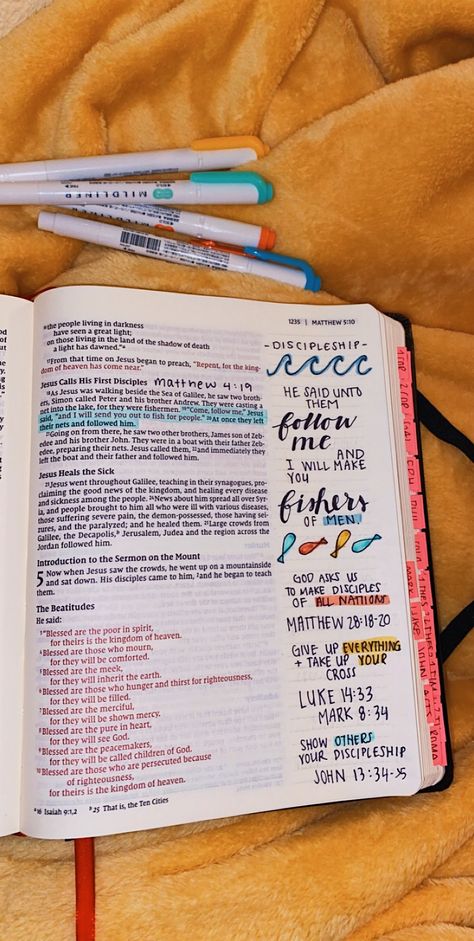 MILDLINER
1235 | MATTHEW 5:10
the people living in darkness
have seen a great light;
on those living in the land of the shadow of death
a light has dawned."
17From that time on Jesus began to preach, "Repent, for the king-
dom of heaven has come near."
Jesus Calls His First Disciples Matthew 4:19
18As Jesus was walking beside the Sea of Galilee, he saw two broth-
ers, Simon called Peter and his brother Andrew. They were casting a
net into the lake, for they were fishermen. 19"Come, follow me," Jesus
said, "and I will send you out to fish for people." 20At once they left
their nets and followed him.
21Going on from there, he saw two other brothers, James son of Zeb-
edee and his brother John. They were in a boat with their father Zeb-
edee, preparing their nets. Jesus called them, 22and immediately they
left the boat and their father and followed him.
Jesus Heals the Sick
23Jesus went throughout Galilee, teaching in their synagogues, pro-
claiming the good news of the kingdom, and healing every disease
and sickness among the people. 24News about him spread all over Syr-
ia, and people brought to him all who were ill with various diseases,
those suffering severe pain, the demon-possessed, those having sei-
zures, and the paralyzed; and he healed them. 25Large crowds from
Galilee, the Decapolis,b Jerusalem, Judea and the region across the
Jordan followed him.
Introduction to the Sermon on the Mount
5 Now when Jesus saw the crowds, he went up on a mountainside
and sat down. His disciples came to him, 2and he began to teach
them.
The Beatitudes
He said:
3"Blessed are the poor in spirit,
for theirs is the kingdom of heaven.
4Blessed are those who mourn,
for they will be comforted.
5Blessed are the meek,
for they will inherit the earth.
6Blessed are those who hunger and thirst for righteousness,
for they will be filled.
7Blessed are the merciful,
for they will be shown mercy.
8Blessed are the pure in heart,
for they will see God.
9Blessed are the peacemakers,
for they will be called children of God.
10Blessed are those who are persecuted because
of righteousness,
for theirs is the kingdom of heaven.
a16 Isaiah 9:1,2 b25 That is, the Ten Cities
-DISCIPLESHIP-
HE SAID UNTO
THEM
follow
me
AND
I WILL MAKE
YOU
fishers
OF MEN
GOD ASKS US
TO MAKE DISCIPLES
OF ALL NATIONS
MATTHEW 28:18-20
GIVE UP EVERYTHING
+ TAKE UP YOUR
CROSS
LUKE 14:33
MARK 8:34
SHOW OTHERS
YOUR DISCIPLESHIP
JOHN 13:34-35
MARK
LUKE
JOHN
ACTS
ROMA